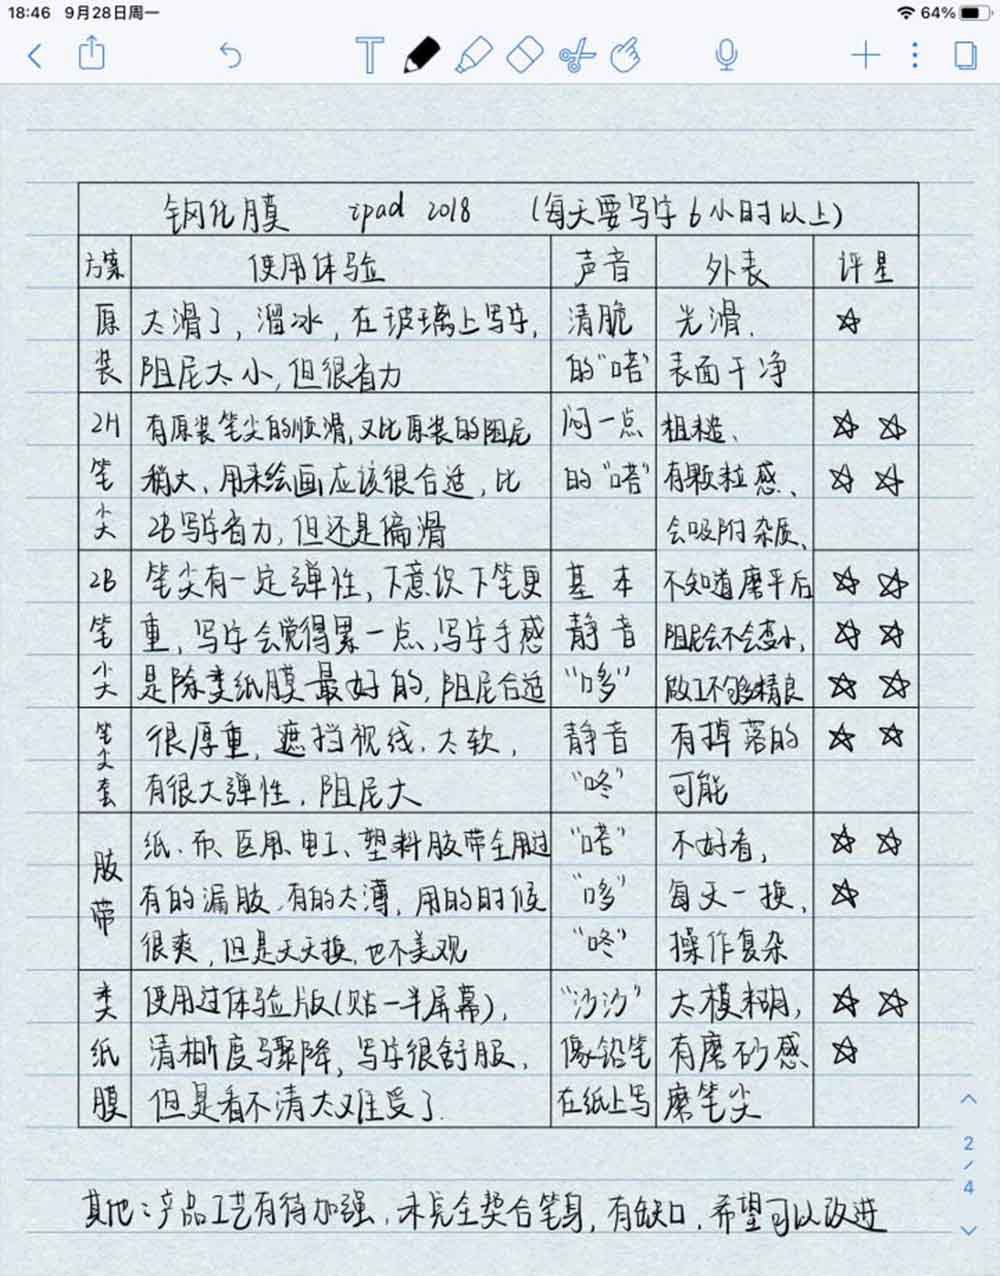 18:46 9月28日周一 64%
钢化膜 ipad 2018 (每天要写字6小时以上)
方案 使用体验 声音 外表 评星
原 太滑了,溜冰,在玻璃上写字, 清脆 光滑、 ☆
装 阻尼太小,但很省力 的"嗒" 表面干净
2H 有原装笔尖的顺滑,又比原装的阻尼 闷一点 粗糙、 ☆ ☆
笔 稍大、用来绘画应该很合适,比 的"嗒" 有颗粒感、 ☆ ☆
尖 2B写字省力,但还是偏滑 会吸附杂质、
2B 笔尖有一定弹性,下意识下笔更 基本 不知道磨平后 ☆ ☆
笔 重,写字会觉得累一点,写字手感 静音 阻尼会不会变小, ☆ ☆
尖 是除类纸膜最好的,阻尼合适 "哆" 做工不够精良 ☆ ☆
笔尖套 很厚重,遮挡视线、太软, 静音 有掉落的 ☆ ☆
有很大弹性,阻尼大 "咚" 可能
胶 纸、布、医用、电工、塑料胶带全用过 "嗒" 不好看, ☆ ☆
带 有的漏胶、有的太薄,用的时候 "哆" 每天一换, ☆
很爽,但是天天换,也不美观 "咚" 操作复杂
类 使用过体验版(贴一半屏幕), "沙沙" 太模糊, ☆ ☆
纸 清晰度骤降,写字很舒服, 像铅笔 有磨砂感、 ☆
膜 但是看不清太难受了. 在纸上写 磨笔尖
2/4
其他:产品工艺有待加强,未完全契合笔身,有缺口,希望可以改进